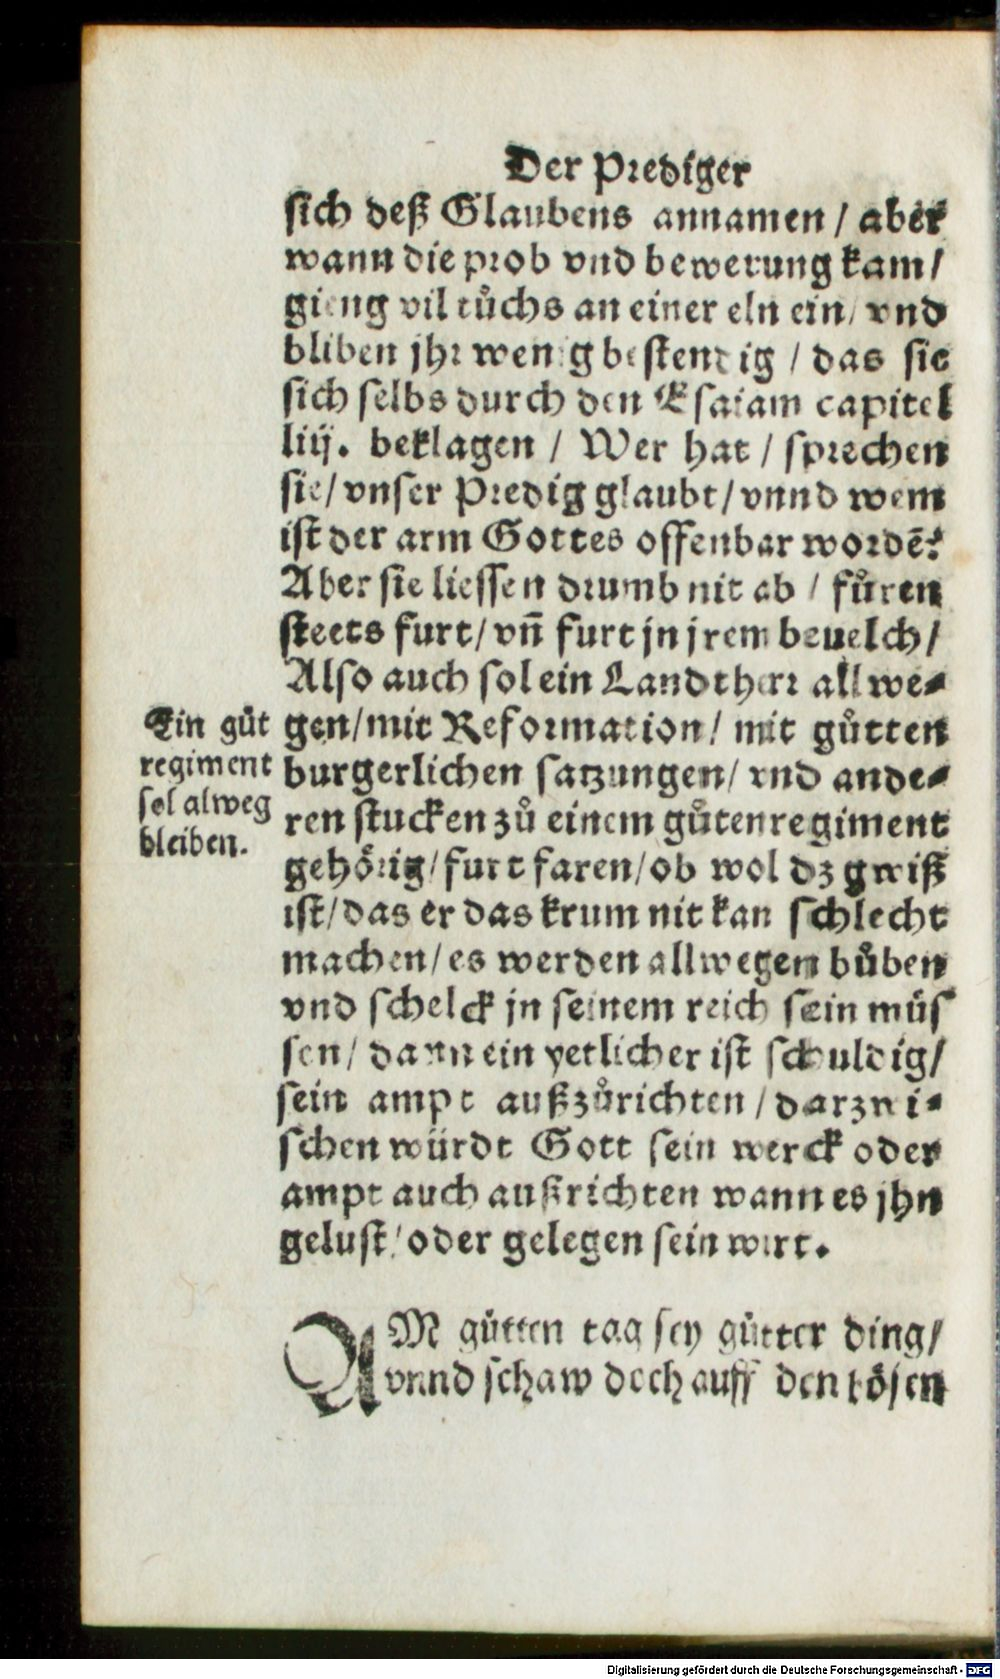 Der Prediger
sich deß Glaubens annamen / aber
wann die prob vnd bewerung kam /
gieng vil tůchs an einer eln ein / vnd
bliben jhr wenig bestendig / das sie
sich selbs durch den Esaiam capitel
liij. beklagen / Wer hat / sprechen
sie / vnser Predig glaubt / vnnd wem
ist der arm Gottes offenbar wordẽ?
Aber sie liessen drumb nit ab / fůren
steets furt / vñ furt jn jrem beuelch /
Also auch sol ein Landtherr allwe-
gen / mit Reformation / mit gůtten
burgerlichen satzungen / vnd ande-
ren stucken zů einem gůten regiment
gehörig / furt faren / ob wol dz gwiß
ist / das er das krum nit kan schlecht
machen / es werden allwegen bůben
vnd schelck jn seinem reich sein müs
sen / dann ein yetlicher ist schuldig /
sein ampt außzůrichten / darzwi-
schen würdt Gott sein werck oder
ampt auch außrichten wann es jhn
gelust / oder gelegen sein wirt.
Ein gůt
regiment
sol alweg
bleiben.
AM gůtten tag sey gůtter ding /
vnnd schaw doch auff den bösen
Digitalisierung gefördert durch die Deutsche Forschungsgemeinschaft - DFG